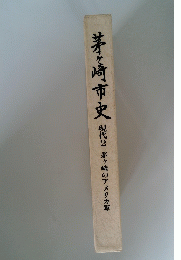 茅ヶ崎市史 現代2 茅ヶ崎のアメリカ軍